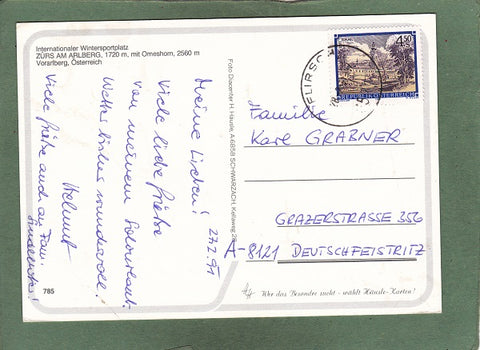 Internationaler Wintersportplatz
ZÜRS AM ARLBERG, 1720 m, mit Omeshorn, 2560 m
Vorarlberg, Österreich
Meine Lieben!
27.2.91
Viele liebe Grüße
von unserem Schiurlaub.
Wetter bisher wundervoll!
Helmut
Viele Grüße auch an Fam.
785
Foto Diacenter H. Häusle, A-6858 SCHWARZACH, Kellaweg
FLIRSCH
4.50
REPUBLIK ÖSTERREICH
Familie
Karl GRABNER
GRAZERSTRASSE 356
A-8121 DEUTSCHFEISTRITZ
Wer das Besondere sucht - wählt Häusle-Karten!